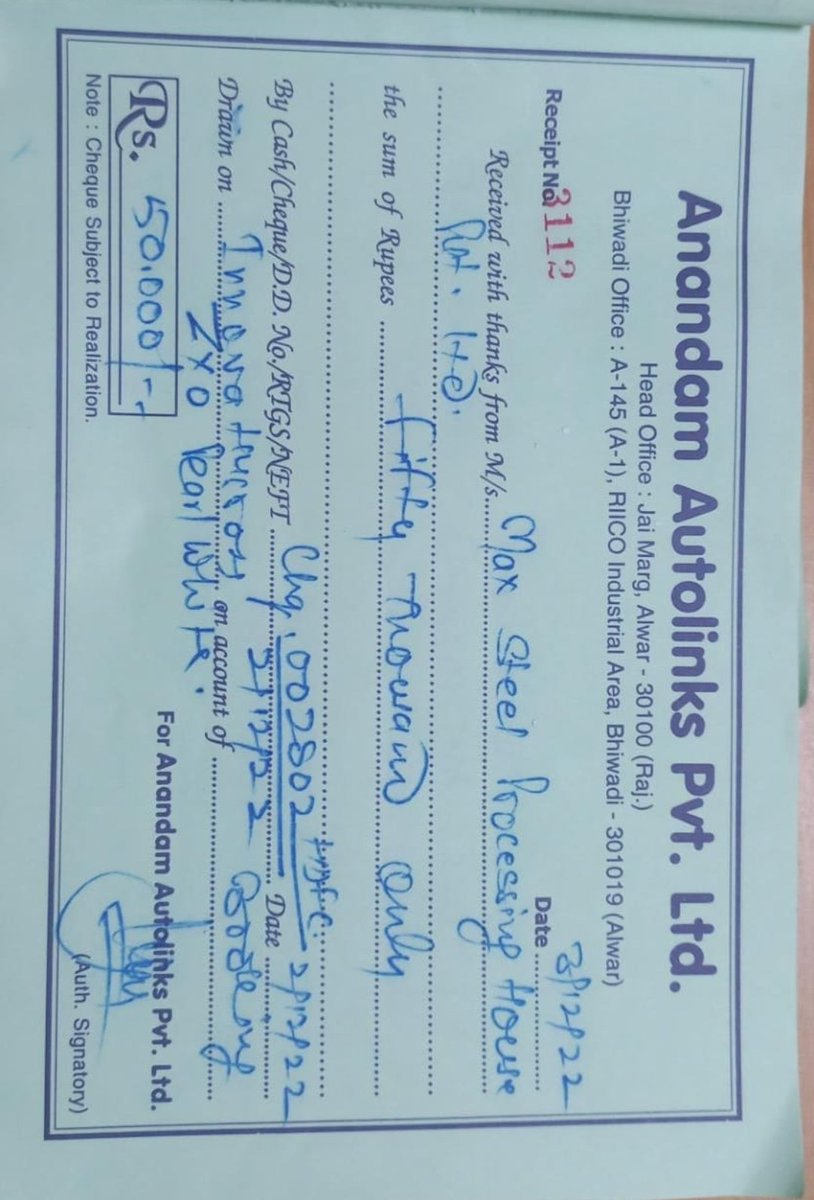 Anandam Autolinks Pvt. Ltd.
Head Office : Jai Marg, Alwar - 30100 (Raj.)
Bhiwadi Office : A-145 (A-1), RIICO Industrial Area, Bhiwadi - 301019 (Alwar)
Receipt No. 3112 Date 3/12/22
Received with thanks from M/s. Max Steel Processing House
Pvt. Ltd.
the sum of Rupees Fifty Thousand Only
HDFC
By Cash/Cheque/D.D. No./RTGS/NEFT Chq. 002802 Date 2/12/22
2/12/22
Drawn on Innova Hycross on account of Booking
ZXO Pearl White.
Rs. 50,000/-
For Anandam Autolinks Pvt. Ltd.
Note : Cheque Subject to Realization.
(Auth. Signatory)